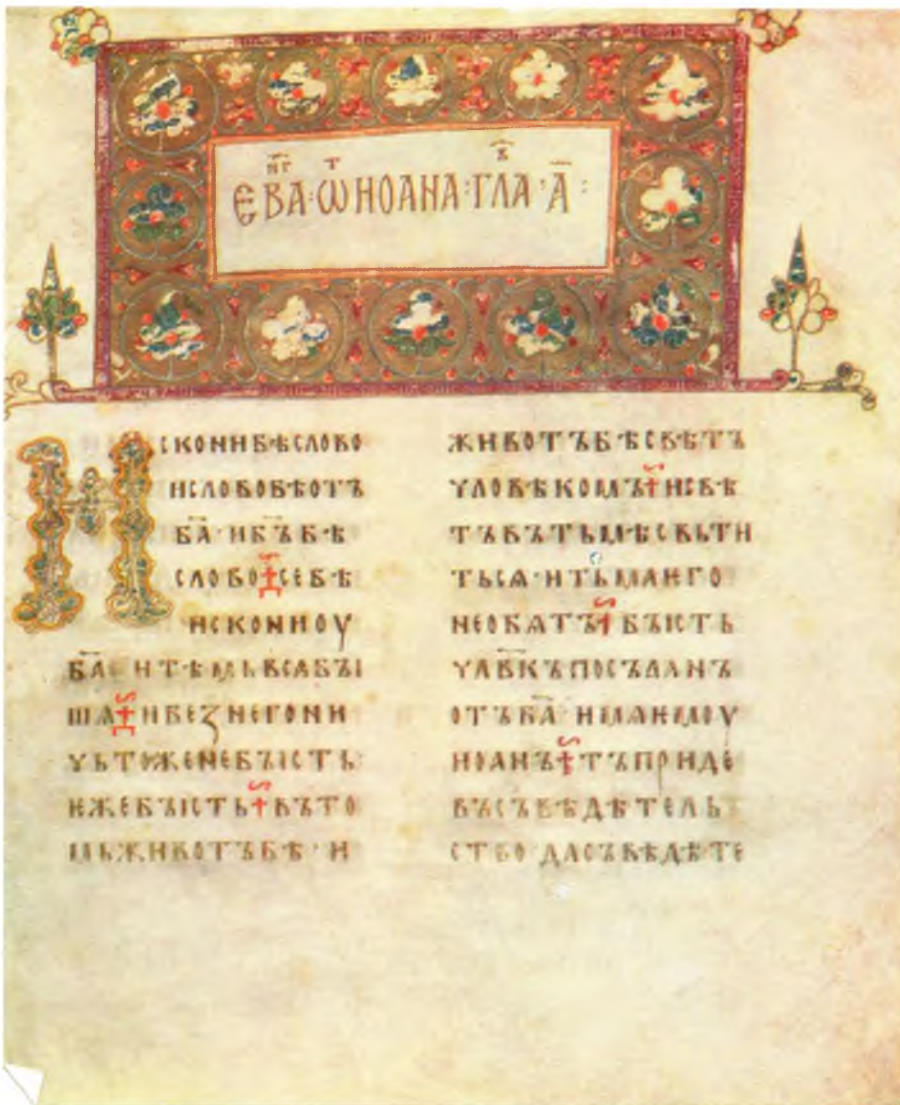 ЕВА҃НГ · Ѿ ИОАНА : ГЛА҃В · А҃ :
ИСКОНИБѢСЛОВО
ИСЛОВОБѢОТЪ
БА҃ · ИБ҃ЪБѢ
СЛОВО СЕБѢ
ИСКОНИОУ
БА҃ · ИТѢМЬВСѦБЫ
ШѦ ИБЕꙁНЕГОНИ
ЧЬТОЖЕНЕБЫСТЬ·
ЕЖЕБЫСТЬ ВЪТО
МЬЖИВОТЪБѢ · И
ЖИВОТЪБѢСВѢТЪ
ЧЛОВѢКОМЪ ИСВѢ
ТЪВЪТЬМѢСВЬТИ
ТЬСѦ · ИТЬМАИГО
НЕОБѦТЪ БЫСТЬ
ЧЛВ҃КЪПОСЪЛАНЪ
ОТЪБА҃ ИМѦИМОУ
ИОАНЪ ТЪПРИДЕ
ВЪСЪВѢДѢТЕЛЬ
СТВО · ДАСЪВѢДѢТЕ